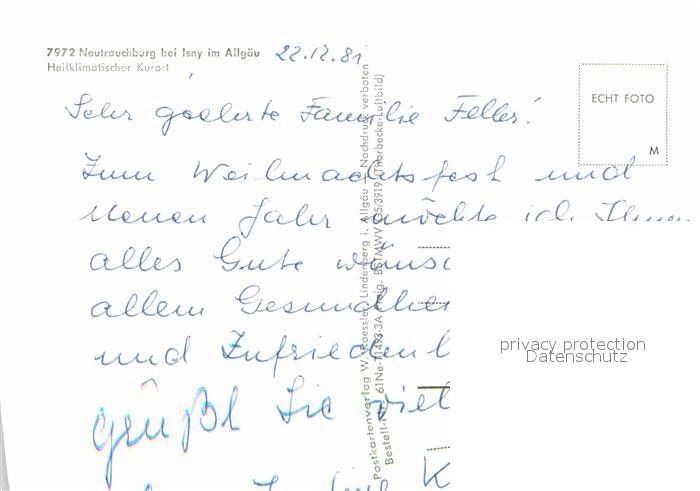 7972 Neutrauchburg bei Isny im Allgäu
Heilklimatischer Kurort
22.12.81
Sehr geehrte Familie Feller!
Zum Weihnachtsfest und
Neuen Jahr möchte ich Ihnen
alles Gute wünsc
allem Gesundhei
und Zufriedenh
grüßt Sie viel
K
Postkartenverlag W. Roessler, Lindenberg i. Allgäu — Nachdruck verboten
ECHT FOTO
M
privacy protection
Datenschutz